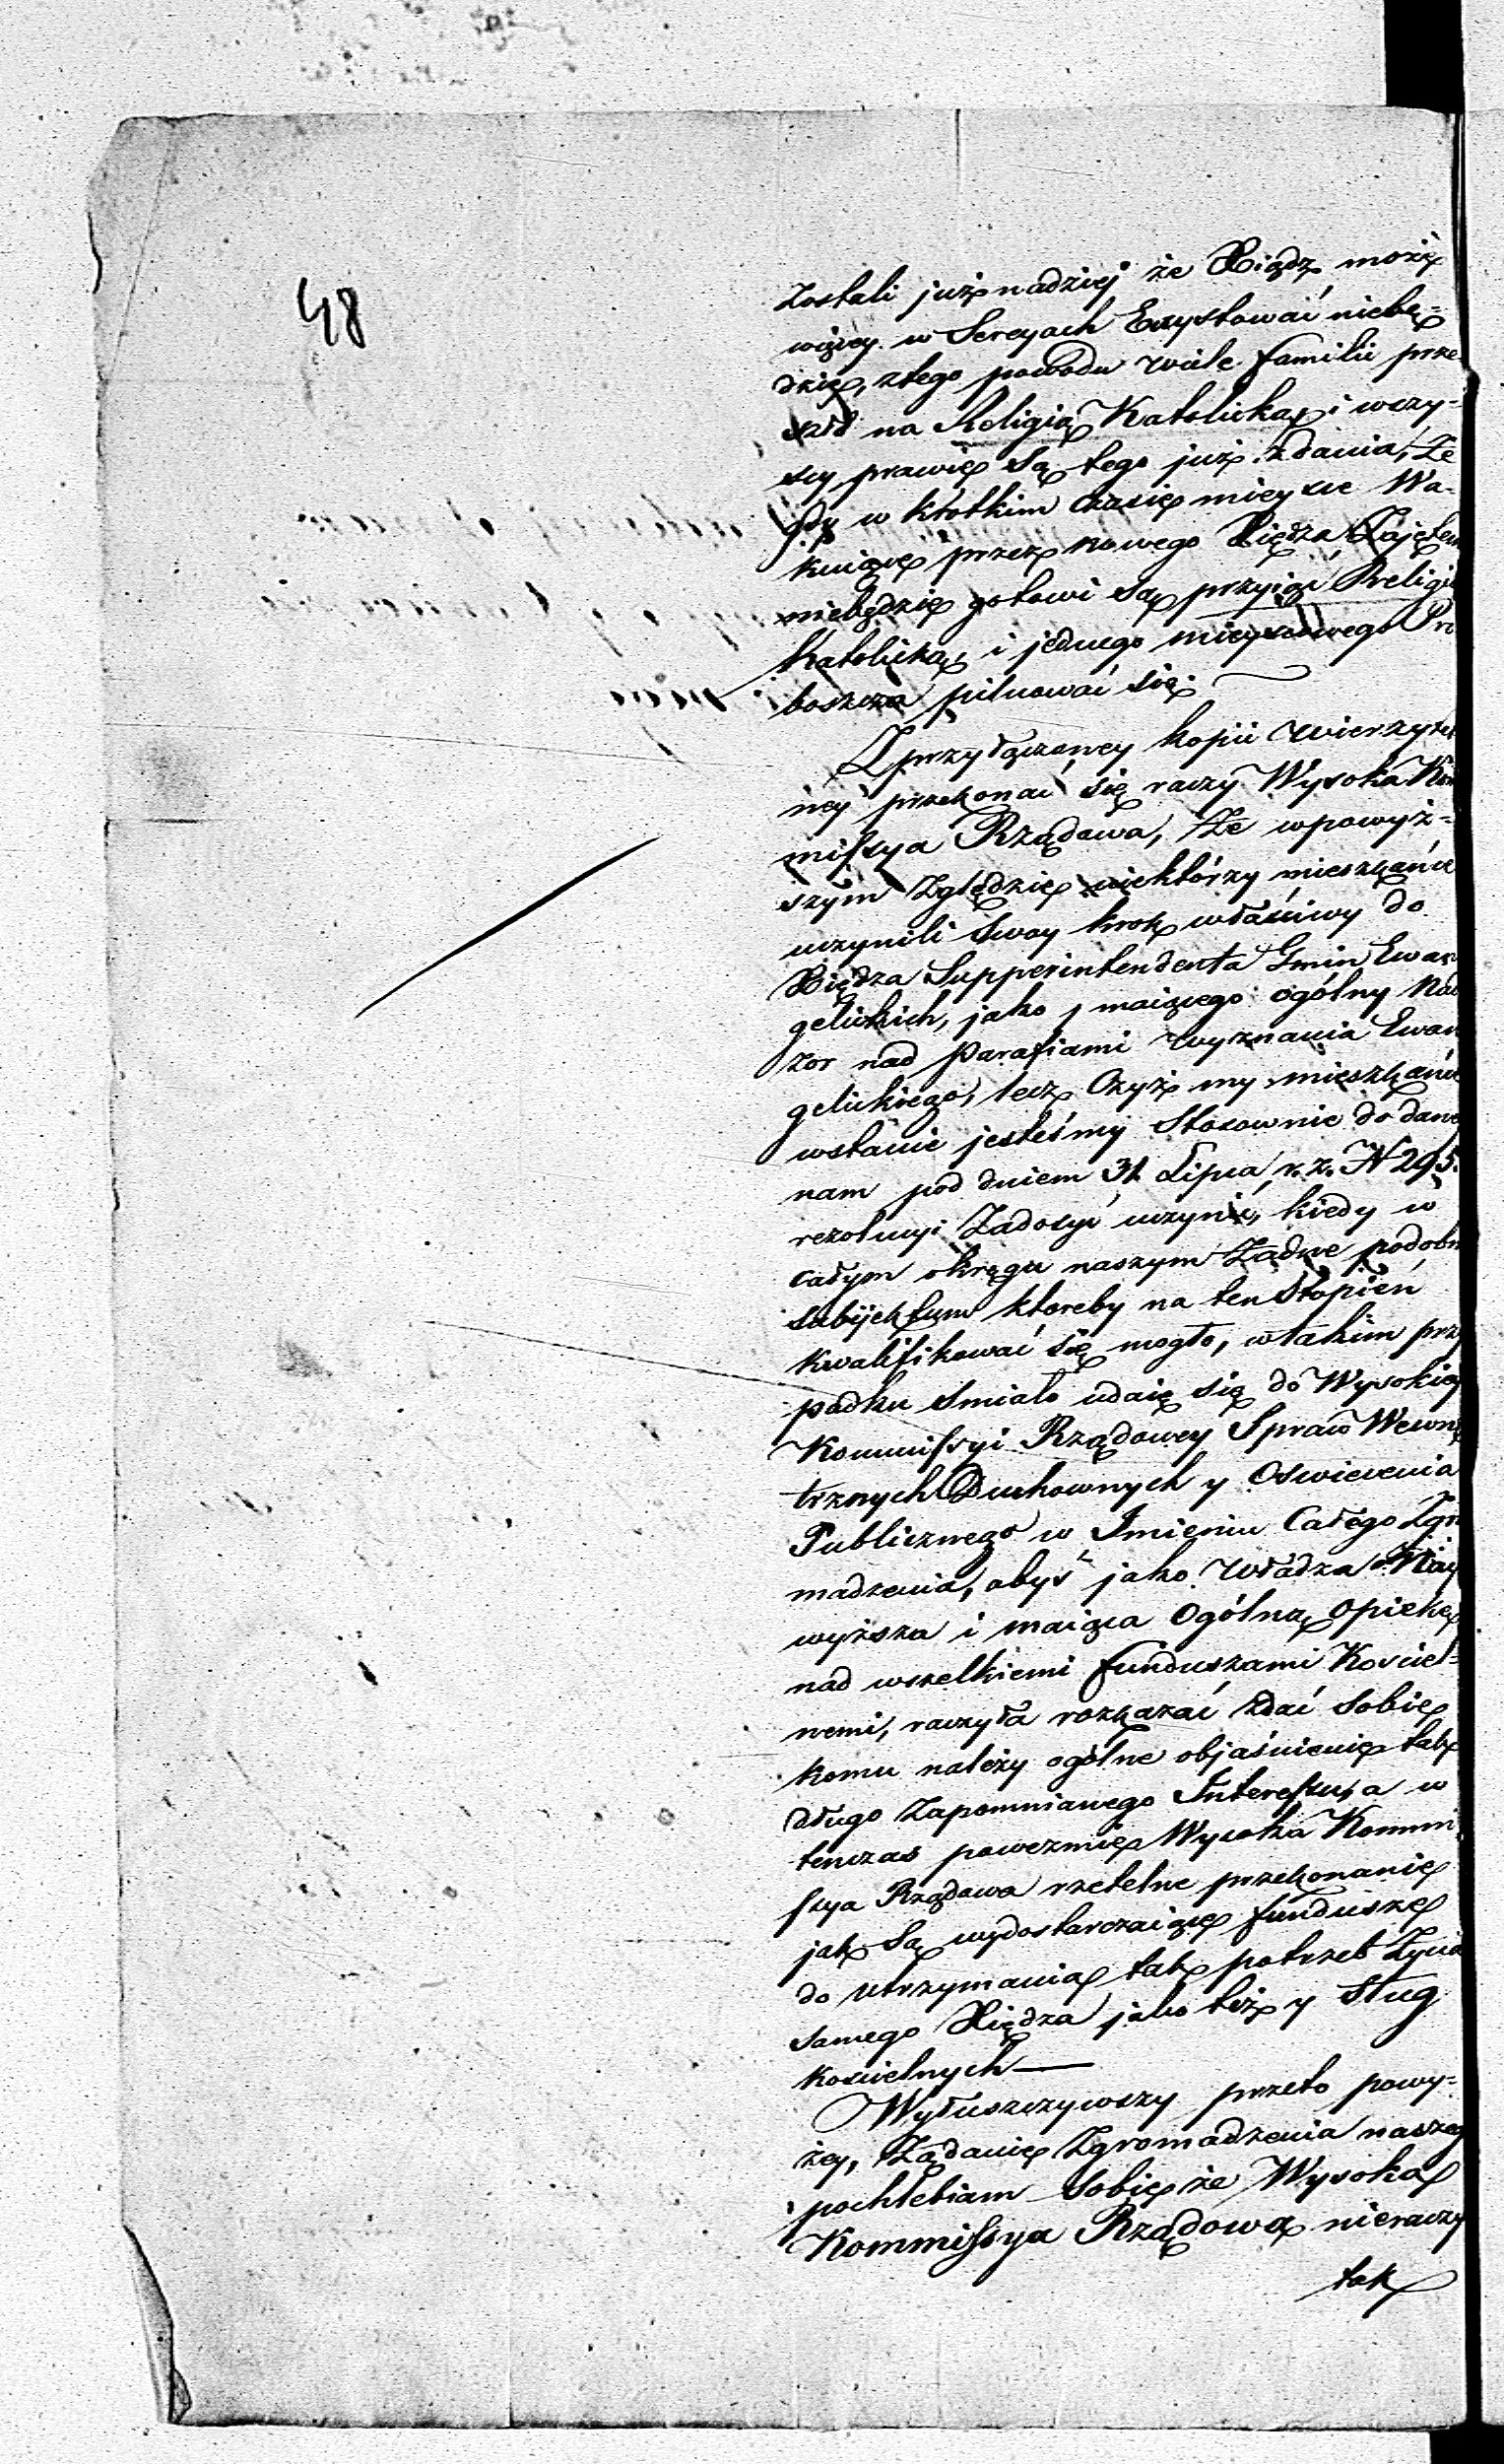 48
zostali już nadziej że Xiądz może
więcey w Sereyach Exystować niebę=
dzie, ztego powodu wiele familii prze
szło na Religią Katolicką i wszy=
scy prawie są tego już zdania, że
gdy w krótkim czasie mieysce Wa-
kuiące przez nowego Xiędza Zajętem
niebędzie gotowi są przyiąć Religią
Katolicką, i jednego mieyscowego Pro
boszcza pilnować się.
Z przyłączoney kopii wierzytel
ney przekonać się raczy Wysoka Kom
missya Rządowa, że wpowyż=
szym Zględzie niektórzy mieszkańcy
uczynili swoy krok właściwy do
Xiędza Supperintendenta Gmin Ewan
gelickich, jako maiącego ogólny Nad
zor nad Parafiami wyznania Ewan
gelickiego, lecz Czyż my mieszkańcy
wstanie jesteśmy Stosownie do daney
nam pod dniem 31 Lipca r. z. N 295.
rezolucyi Zadosyć uczynić, kiedy w
całym okręgu naszym Żadne podobn
subijektum ktoreby na ten Stopień
kwalifikować się mogło, wtakim przy
padku smiało udaię się do Wysokiey
Kommissyi Rządowey Spraw Wewnę
trznych Duchownych y Oswiecenia
Publicznego w Imieniu Całego Zgro
madzenia, abyś jako Władza Nay
wyższa i maiąca Ogólną opiekę
nad wszelkiemi funduszami Kosciel=
nemi, raczyła rozkazać zdać sobie
komu należy ogólne objaśnienie tak
długo Zapomnianego Interessu, a w
tenczas powezmie Wysoka Kommi
ssya Rządowa rzetelne przekonanie
jak są wydostarczaiące fundusze
do utrzymania tak potrzeb Życia
samego Xiędza jako też y Sług
koscielnych —
Wyłuszczywszy przeto powy=
żey, Żądanie Zgromadzenia naszego
pochlebiam sobie że Wysoka
Kommissya Rządowa nieraczy
tak